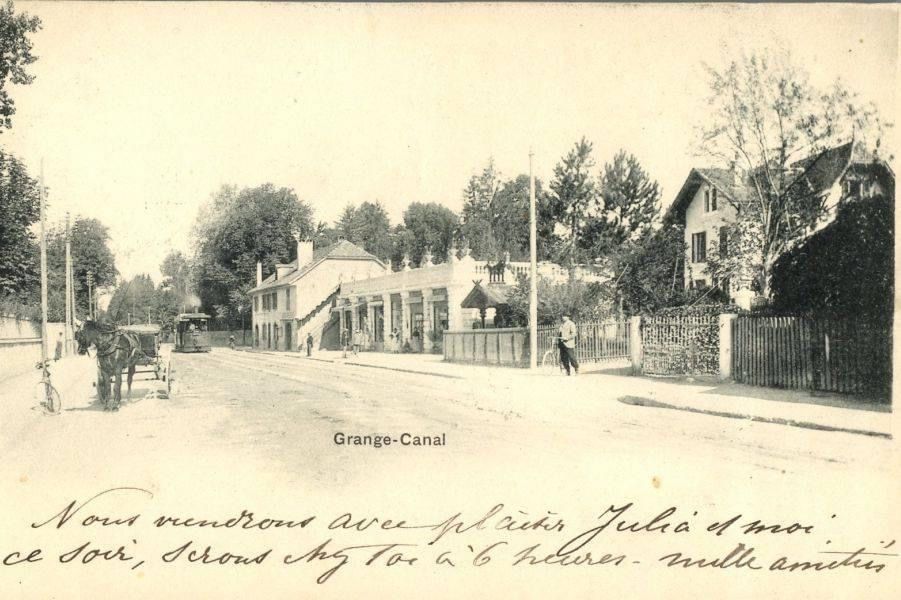 Grange-Canal
Nous viendrons avec plaisir Julia et moi
ce soir, serons chez toi à 6 heures - mille amitiés